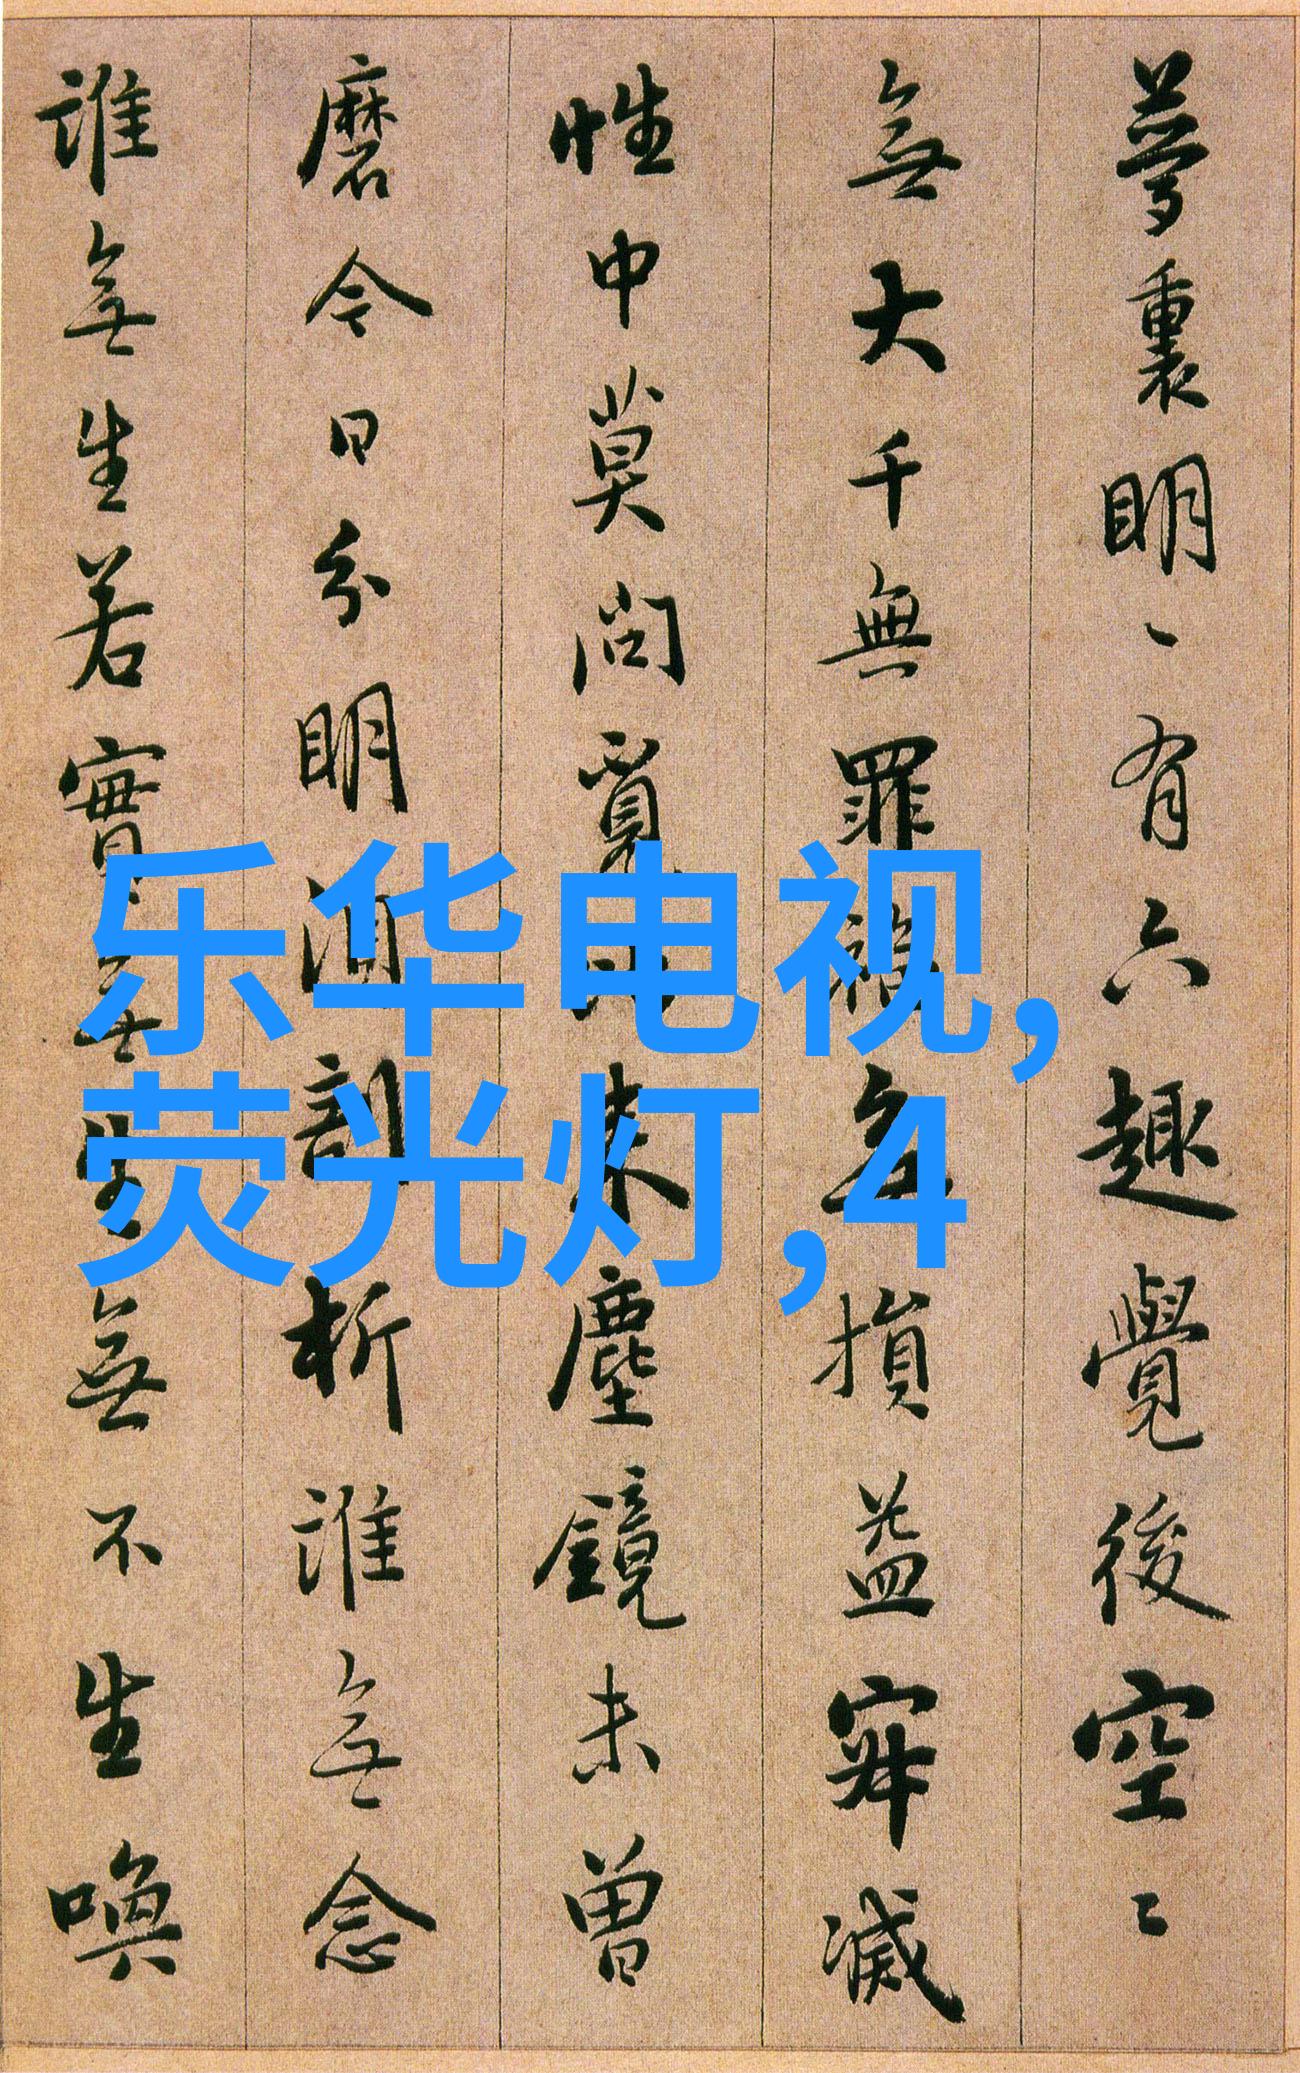 夢裏明〻有六趣覺後空〻
無大千無罪福無損益寂滅
性中莫問覓比来塵鏡未曾
磨今日分明須剖析誰無念
誰無生若實無生無不生喚
乐华电视,
荧光灯,4